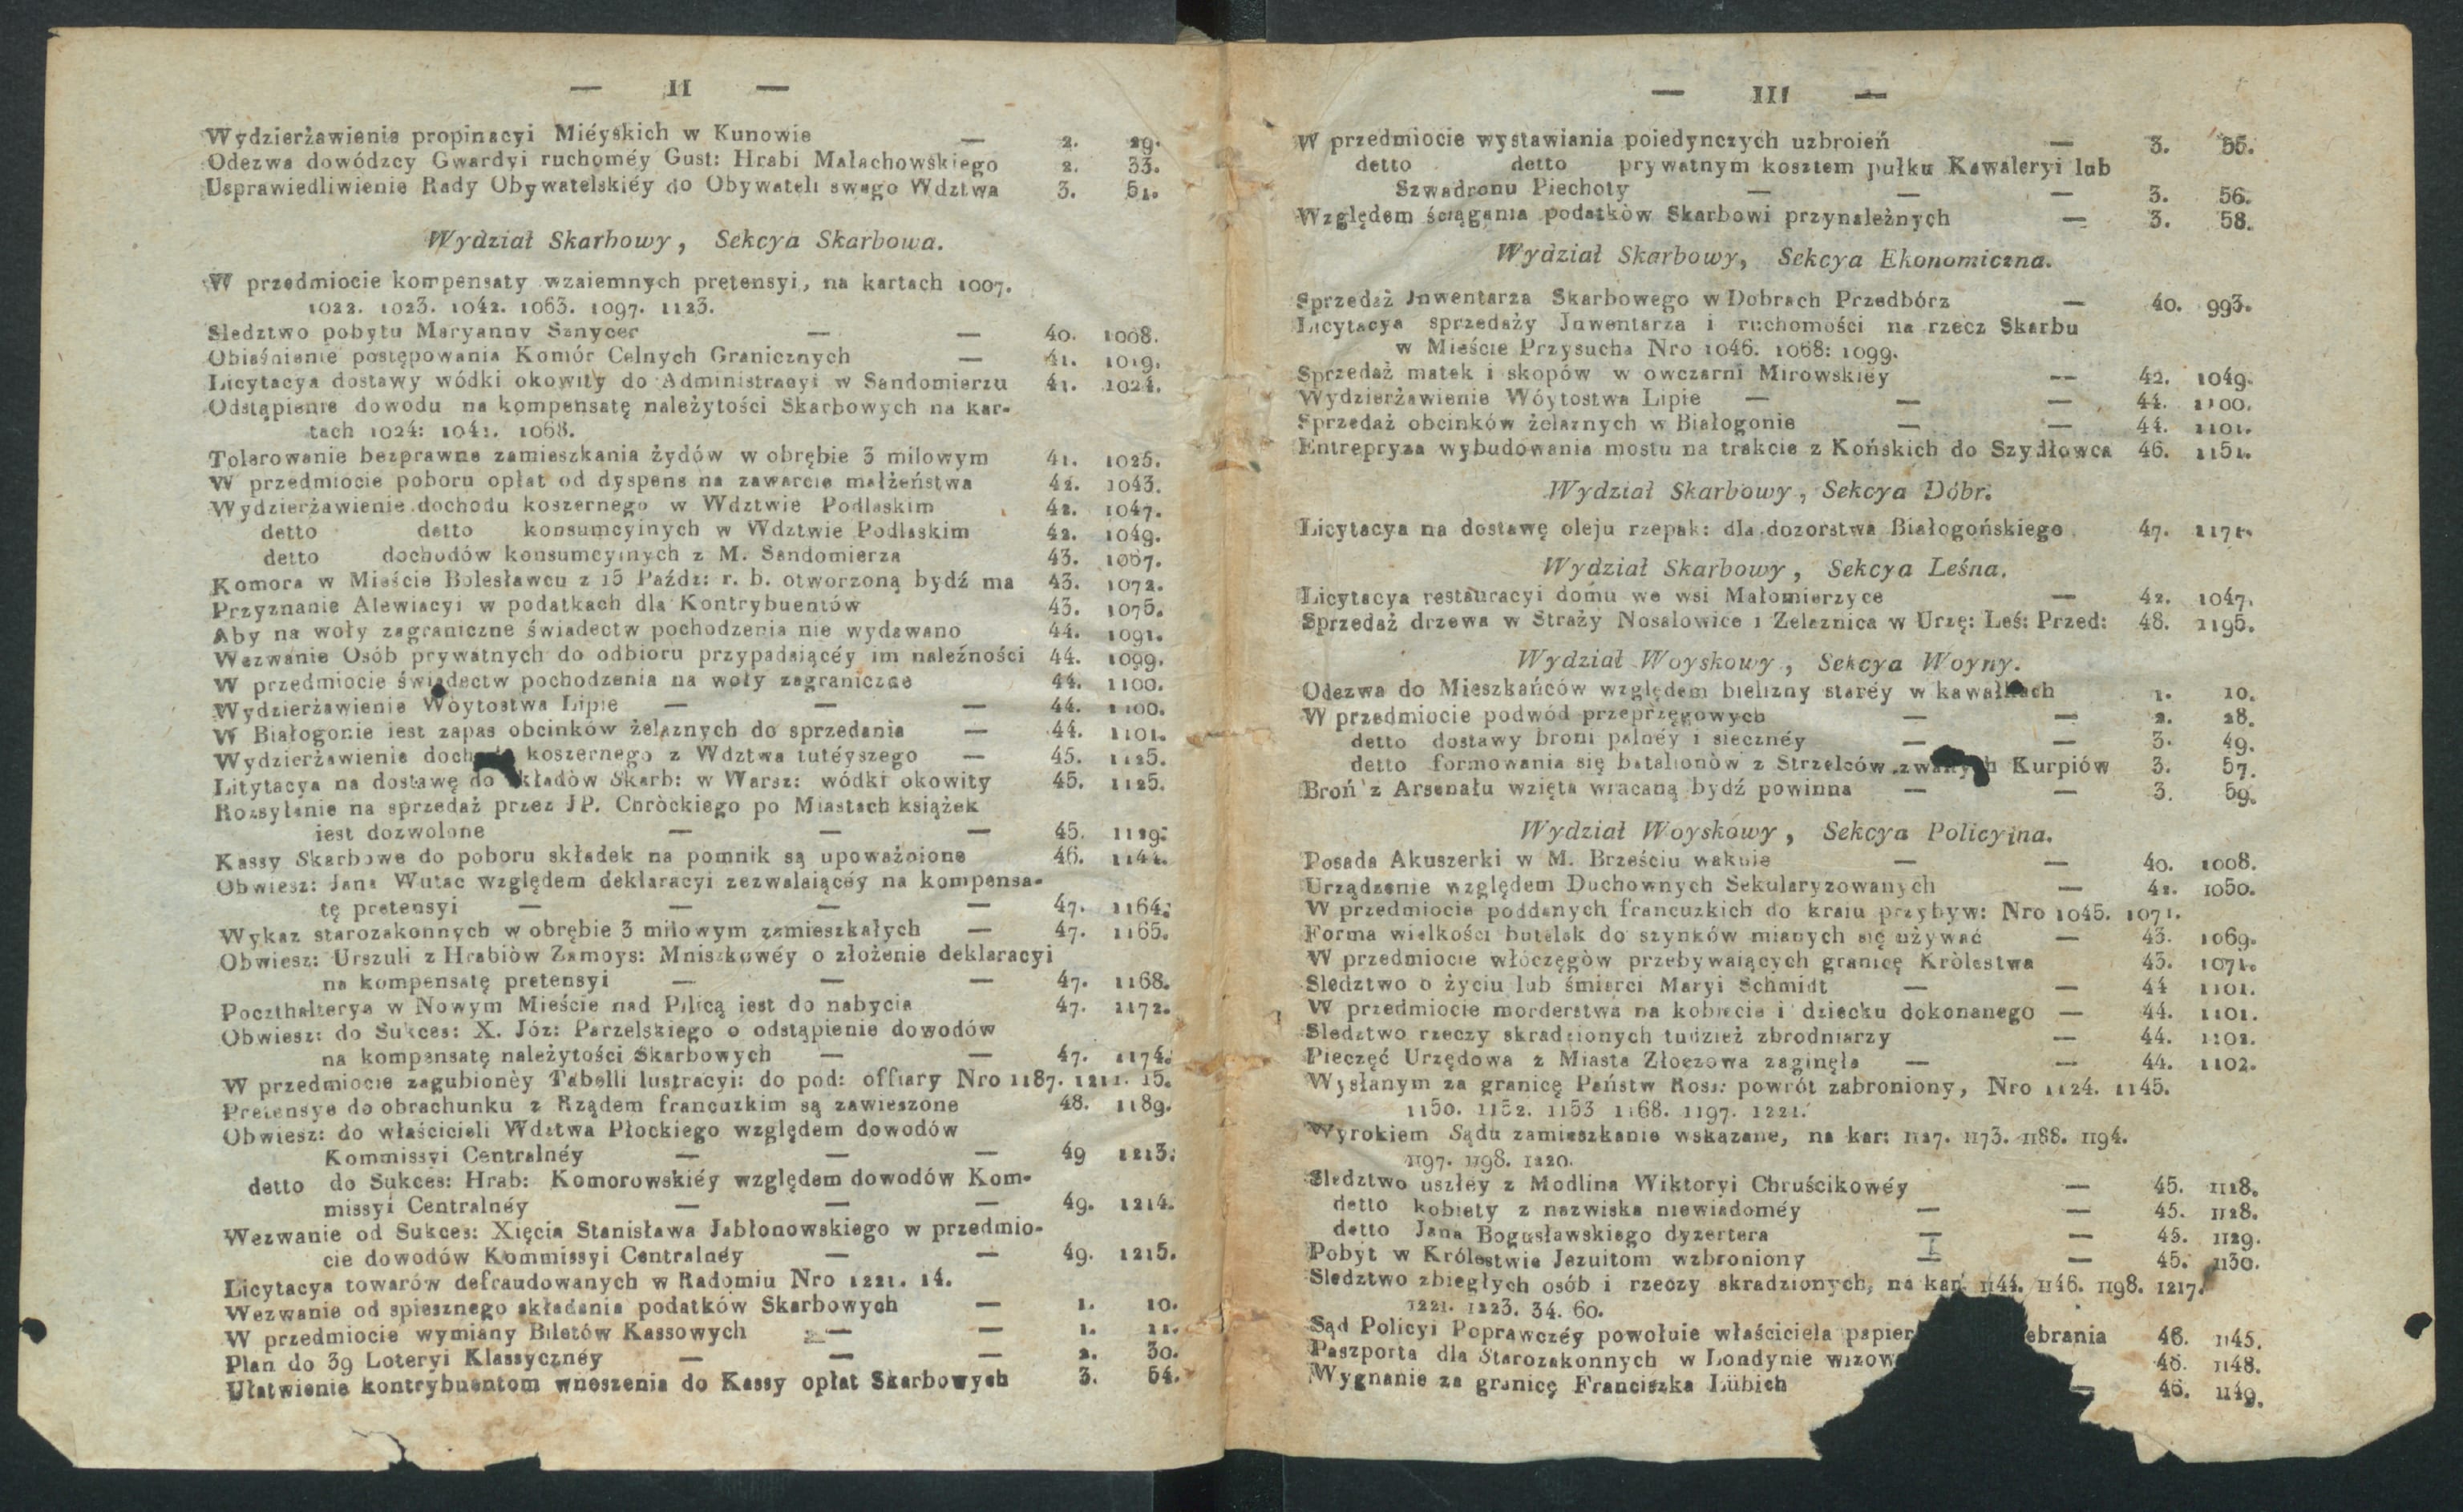 — II —
Wydzierżawienie propinacyi Miéyskich w Kunowie — 2. 29.
Odezwa dowódzcy Gwardyi ruchoméy Gust: Hrabi Małachowskiego 2. 33.
Usprawiedliwienie Rady Obywatelskiéy do Obywateli swego Wdztwa 3. 51.
Wydział Skarbowy, Sekcya Skarbowa.
W przedmiocie kompensaty wzaiemnych pretensyi, na kartach 1007.
1022. 1023. 1042. 1063. 1097. 1123.
Sledztwo pobytu Maryanny Sznycer — — 40. 1008.
Obiaśnienie postępowania Komór Celnych Granicznych — 41. 1019.
Licytacya dostawy wódki okowity do Administracyi w Sandomierzu 41. 1024.
Odstąpienie dowodu na kompensatę należytości Skarbowych na kar-
tach 1024: 1041. 1068.
Tolerowanie bezprawne zamieszkania żydów w obrębie 3 milowym 41. 1025.
W przedmiocie poboru opłat od dyspens na zawarcie małżeństwa 42. 1043.
Wydzierżawienie dochodu koszernego w Wdztwie Podlaskim 42. 1047.
detto detto konsumcyinych w Wdztwie Podlaskim 42. 1049.
detto dochodów konsumcyinych z M. Sandomierza 43. 1067.
Komora w Mieście Bolesławcu z 15 Paźdz: r. b. otworzoną bydź ma 43. 1072.
Przyznanie Alewiacyi w podatkach dla Kontrybuentów 43. 1075.
Aby na woły zagraniczne świadectw pochodzenia nie wydawano 44. 1091.
Wezwanie Osób prywatnych do odbioru przypadaiącéy im należności 44. 1099.
W przedmiocie świadectw pochodzenia na woły zagraniczne 44. 1100.
Wydzierżawienie Wóytostwa Lipie — — — 44. 1100.
W Białogonie iest zapas obcinków żelaznych do sprzedania — 44. 1101.
Wydzierżawienie koszernego z Wdztwa tutéyszego — 45. 1125.
Litytacya na dostawę do kładów Skarb: w Warsz: wódki okowity 45. 1125.
Rozsyłanie na sprzedaż przez JP. Chròckiego po Miastach książek
iest dozwolone — — — 45. 1129.
Kassy Skarbowe do poboru składek na pomnik są upoważnione 46. 1144.
Obwiesz: Jana Wutac względem deklaracyi zezwalaiącéy na kompensa-
tę pretensyi — — — — 47. 1164.
Wykaz starozakonnych w obrębie 3 milowym zamieszkałych — 47. 1165.
Obwiesz: Urszuli z Hrabiów Zamoys: Mniszkowéy o złożenie deklaracyi
na kompensatę pretensyi — — — 47. 1168.
Poczthalterya w Nowym Mieście nad Pilicą iest do nabycia 47. 1172.
Obwiesz: do Sukces: X. Józ: Parzelskiego o odstąpienie dowodów
na kompensatę należytości Skarbowych — — 47. 1174.
W przedmiocie zagubionèy Tabelli lustracyi: do pod: offiary Nro 1187. 1211. 15.
Pretensye do obrachunku z Rządem francuzkim są zawieszone 48. 1189.
Obwiesz: do właścicieli Wdztwa Płockiego względem dowodów
Kommissyi Centralnéy — — — 49 1213.
detto do Sukces: Hrab: Komorowskiéy względem dowodów Kom-
missyi Centralnéy — — — 49. 1214.
Wezwanie od Sukces: Xięcia Stanisława Jabłonowskiego w przedmio-
cie dowodów Kommissyi Centralnéy — — 49. 1215.
Licytacya towarów defraudowanych w Radomiu Nro 1221. 14.
Wezwanie od spiesznego składania podatków Skarbowych — 1. 10.
W przedmiocie wymiany Biletów Kassowych — — 1. 11.
Plan do 39 Loteryi Klassycznéy — — — 2. 30.
Ułatwienie kontrybuentom wnoszenia do Kassy opłat Skarbowych 3. 54.
— III —
W przedmiocie wystawiania poiedynczych uzbroień — 3. 55.
detto detto prywatnym kosztem pułku Kawaleryi lub
Szwadronu Piechoty — — — 3. 56.
Względem ściągania podatków Skarbowi przynależnych — 3. 58.
Wydział Skarbowy, Sekcya Ekonomiczna.
Sprzedaż Jnwentarza Skarbowego w Dobrach Przedbórz — 40. 993.
Licytacya sprzedaży Jnwentarza i ruchomości na rzecz Skarbu
w Mieście Przysucha Nro 1046. 1068: 1099.
Sprzedaż matek i skopów w owczarni Mirowskiéy — 42. 1049.
Wydzierżawienie Wóytostwa Lipie — — — 44. 1100.
Sprzedaż obcinków żelaznych w Białogonie — — 44. 1101.
Entrepryza wybudowania mostu na trakcie z Końskich do Szydłowca 46. 1151.
Wydział Skarbowy, Sekcya Dóbr.
Licytacya na dostawę oleju rzepak: dla dozorstwa Białogońskiego 47. 1171.
Wydział Skarbowy, Sekcya Leśna.
Licytacya restauracyi domu we wsi Małomierzyce — 42. 1047.
Sprzedaż drzewa w Straży Nosalowice i Zeleznica w Urzę: Leś: Przed: 48. 1195.
Wydział Woyskowy, Sekcya Woyny.
Odezwa do Mieszkańców względem bielizny staréy w kawałkach 1. 10.
W przedmiocie podwód przeprzęgowych — — 2. 28.
detto dostawy broni palnéy i siecznéy — — 3. 49.
detto formowania się batalionòw z Strzelców zwanych Kurpiów 3. 57.
Broń z Arsenału wzięta wracaną bydź powinna — — 3. 59.
Wydział Woyskowy, Sekcya Policyina.
Posada Akuszerki w M. Brześciu wakuie — — 40. 1008.
Urządzenie względem Duchownych Sekularyzowanych — 42. 1050.
W przedmiocie poddanych francuzkich do kraiu przybyw: Nro 1045. 1071.
Forma wielkości butelek do szynków mianych się używać — 43. 1069.
W przedmiocie włóczęgòw przebywaiących granicę Kròlestwa 43. 1071.
Sledztwo o życiu lub śmierci Maryi Schmidt — — 44 1101.
W przedmiocie morderstwa na kobiecie i dziecku dokonanego — 44. 1101.
Sledztwo rzeczy skradzionych tudzież zbrodniarzy — 44. 1102.
Pieczęć Urzędowa z Miasta Złoczowa zaginęła — — 44. 1102.
Wysłanym za granicę Państw Ross: powrót zabroniony, Nro 1124. 1145.
1150. 1152. 1153 1168. 1197. 1221.
Wyrokiem Sądu zamieszkanie wskazane, na kar: 1127. 1173. 1188. 1194.
1197. 1198. 1220.
Sledztwo uszłéy z Modlina Wiktoryi Chruścikowéy — 45. 1128.
detto kobiety z nazwiska niewiadoméy — — 45. 1128.
detto Jana Bogusławskiego dyzertera — — 45. 1129.
Pobyt w Królestwie Jezuitom wzbroniony — — 45. 1130.
Sledztwo zbiegłych osób i rzeczy skradzionych, na kar. 1144. 1146. 1198. 1217.
1221. 1223. 34. 60.
Sąd Policyi Poprawczéy powołuie właściciela papier ebrania 46. 1145.
Paszporta dla Starozakonnych w Londynie wizow 46. 1148.
Wygnanie za granicę Franciszka Lübich — 46. 1149.